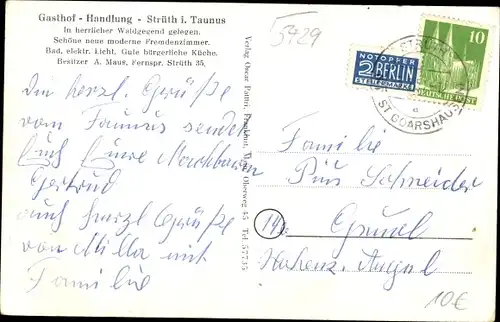 Gasthof - Handlung - Strüth i. Taunus
In herrlicher Waldgegend gelegen.
Schöne neue moderne Fremdenzimmer.
Bad, elektr. Licht. Gute bürgerliche Küche.
Besitzer A. Maus, Fernspr. Strüth 35.
Die herzl. Grüße
vom Taunus sendet
Euch Eure Nachbarin
Gertrud
auch herzl Grüße
von Milla mit
Familie
Verlag Oscar Frankfurt Oberweg 45 Tel. 57735
5729
NOTOPFER
2 BERLIN
STEUERMARKE
10
DEUTSCHE POST
ST GOARSHAUSEN
a
Familie
Pius Schneider
Hohenz.
10€